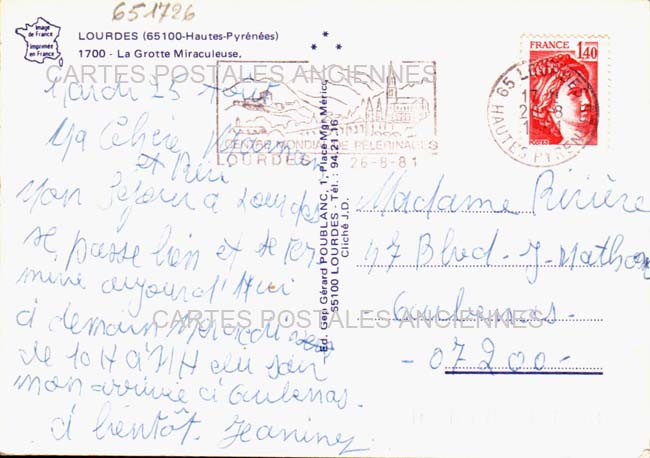 651726
Image de France
Imprimée en France
LOURDES (65100-Hautes-Pyrénées)
1700 - La Grotte Miraculeuse.
CARTES POSTALES ANCIENNES
FRANCE 1,40
65 LOURDES
HAUTES PYRENEES
CENTRE MONDIAL DE PÈLERINAGES
LOURDES 26-8-81
Mardi 25 Août
Ma Chère
et René
Mon Séjour à Lourdes
se passe bien et se ter
mine aujourd'Hui
à demain Mercredi
de 10H à 11H du soir
mon arrivée à Aubenas.
à bientôt. Jeanine
Ed. Gep Gérard POUBLANC, 1, Place Mgr Méricq
65100 LOURDES - Tél. : 94.21.16
Cliché J.D.
Madame Rivière
47 Blvd - J-Mathon
Aubenas -
- 07200 -
CARTES POSTALES ANCIENNES